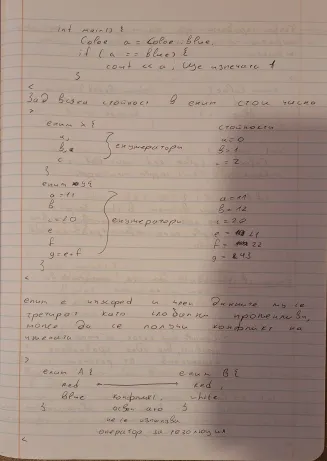 int main() {
Color a = Color blue.
if (a == blue) {
cout << a, ще изпечата 1
}
<
Зад всяка стойност в enum стои число
>
enum X {
a,
b,
c
} енумератори
стойности
a=0
b=1
c=2
}
enum 94
a=11
b
c=20
e
f
g=e+f
} енумератори
a=11
b=12
c=20
e=21
f=22
g=43
}
<
enum е unscoped и член данните му се
третират като глобални променливи,
може да се получи конфликт на
имената
>
enum A {
red
blue
}
enum B {
red,
white
}
конфликт,
освен ако
не се използва
оператор за резолюция
<